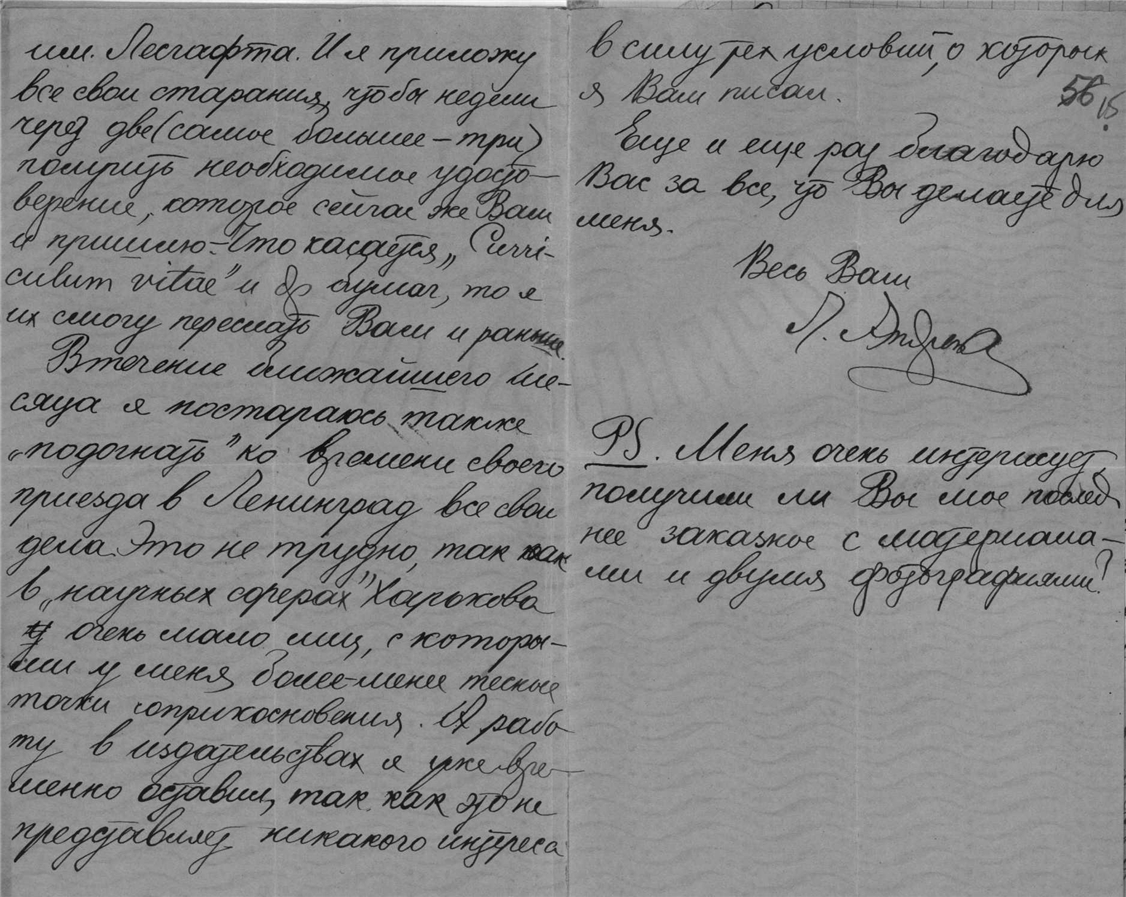 им. Лесгафта. И я приложу
все свои старания, чтобы недели
через две (самое большее – три)
получить необходимое удосто-
верение, которое сейчас же Вам
и пришлю. – Что касается „Curri-
culum vitae" и др бумаг, то я
их смогу переслать Вам и раньше.
Втечение ближайшего ме-
сяца я постараюсь также
„подогнать" ко времени своего
приезда в Ленинград все свои
дела. Это не трудно, так как
в „научных сферах" Харькова
очень мало лиц, с которы-
ми у меня более-менее тесные
точки соприкосновения. И рабо-
ту в издательствах я уже вре-
менно оставил, так как это не
представляет никакого интереса
в силу тех условий, о которых
я Вам писал.
56 15
Еще и еще раз благодарю
Вас за все, что Вы делаете для
меня.
Весь Ваш
Л. Андреев
PS. Меня очень интересует,
получили ли Вы мое послед-
нее заказное с материала-
ми и двумя фотографиями?